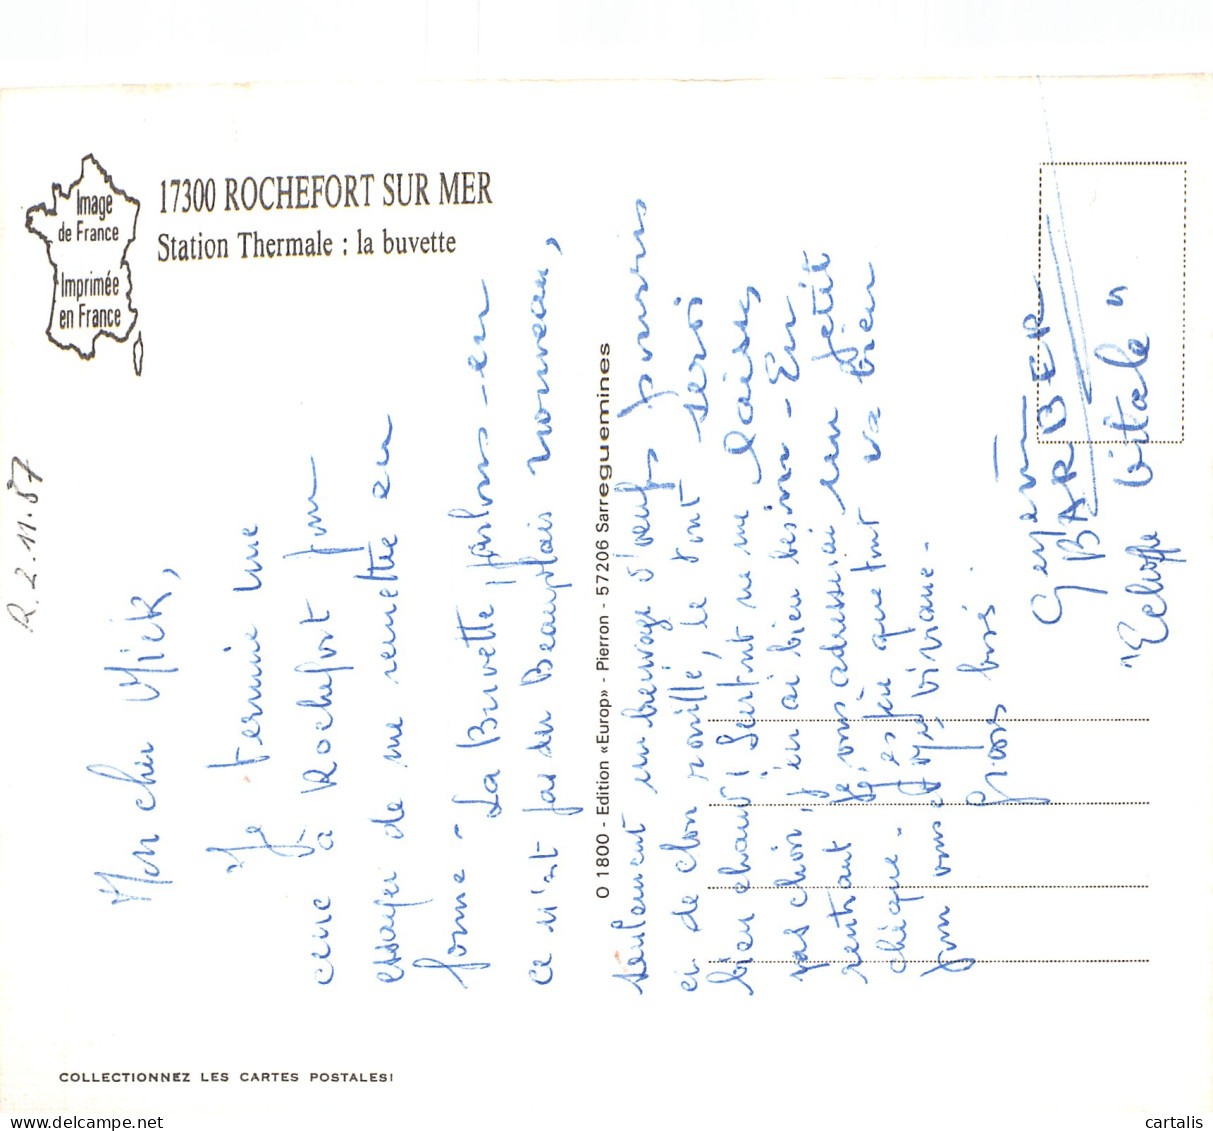 Image
de France
Imprimée
en France
17300 ROCHEFORT SUR MER
Station Thermale : la buvette
R. 2.11.87
Mon cher Mick,
Je termine une
cure à Rochefort pour
essayer de me remettre en
forme - 
La Buvette, parlons-en
ce n'est pas du Beaujolais nouveau,
O 1800 - Edition «Europ» - Pierron - 57206 Sarreguemines
seulement un breuvage d'oeufs pourris
et de clou rouillé, le tout servi
bien chaud! Surtout ne me laissez
pas choir, j'en ai bien besoin - En
rentrant je vous adresserai un petit
chèque - J'espère que tout va bien
pour vous et Viviane -
Gros bisé.
BARBER
"Echoppe Vitale"
COLLECTIONNEZ LES CARTES POSTALES!
cartalis